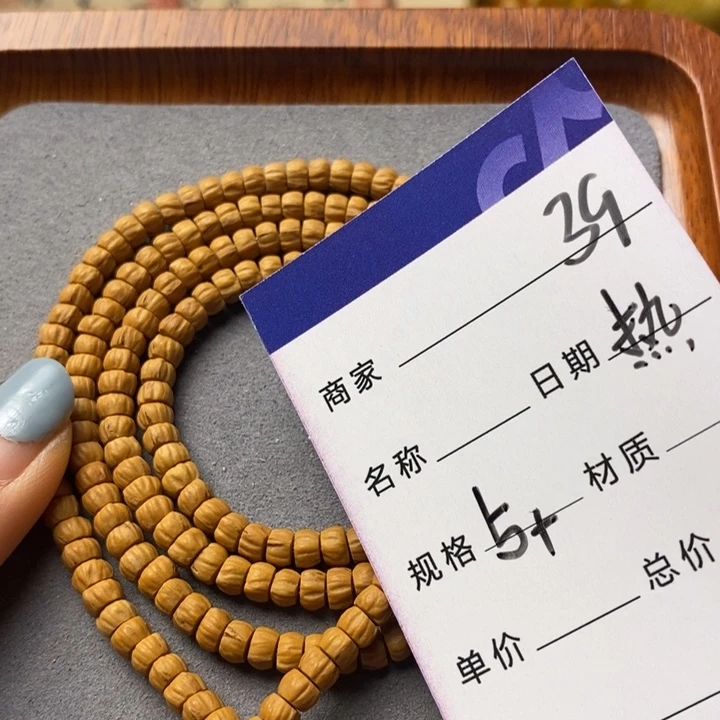 39
商家
日期 热
名称
材质
规格 5+
总价
单价